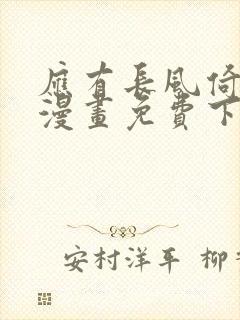 應有長風倚
漫畫免費下
安村洋平 柳